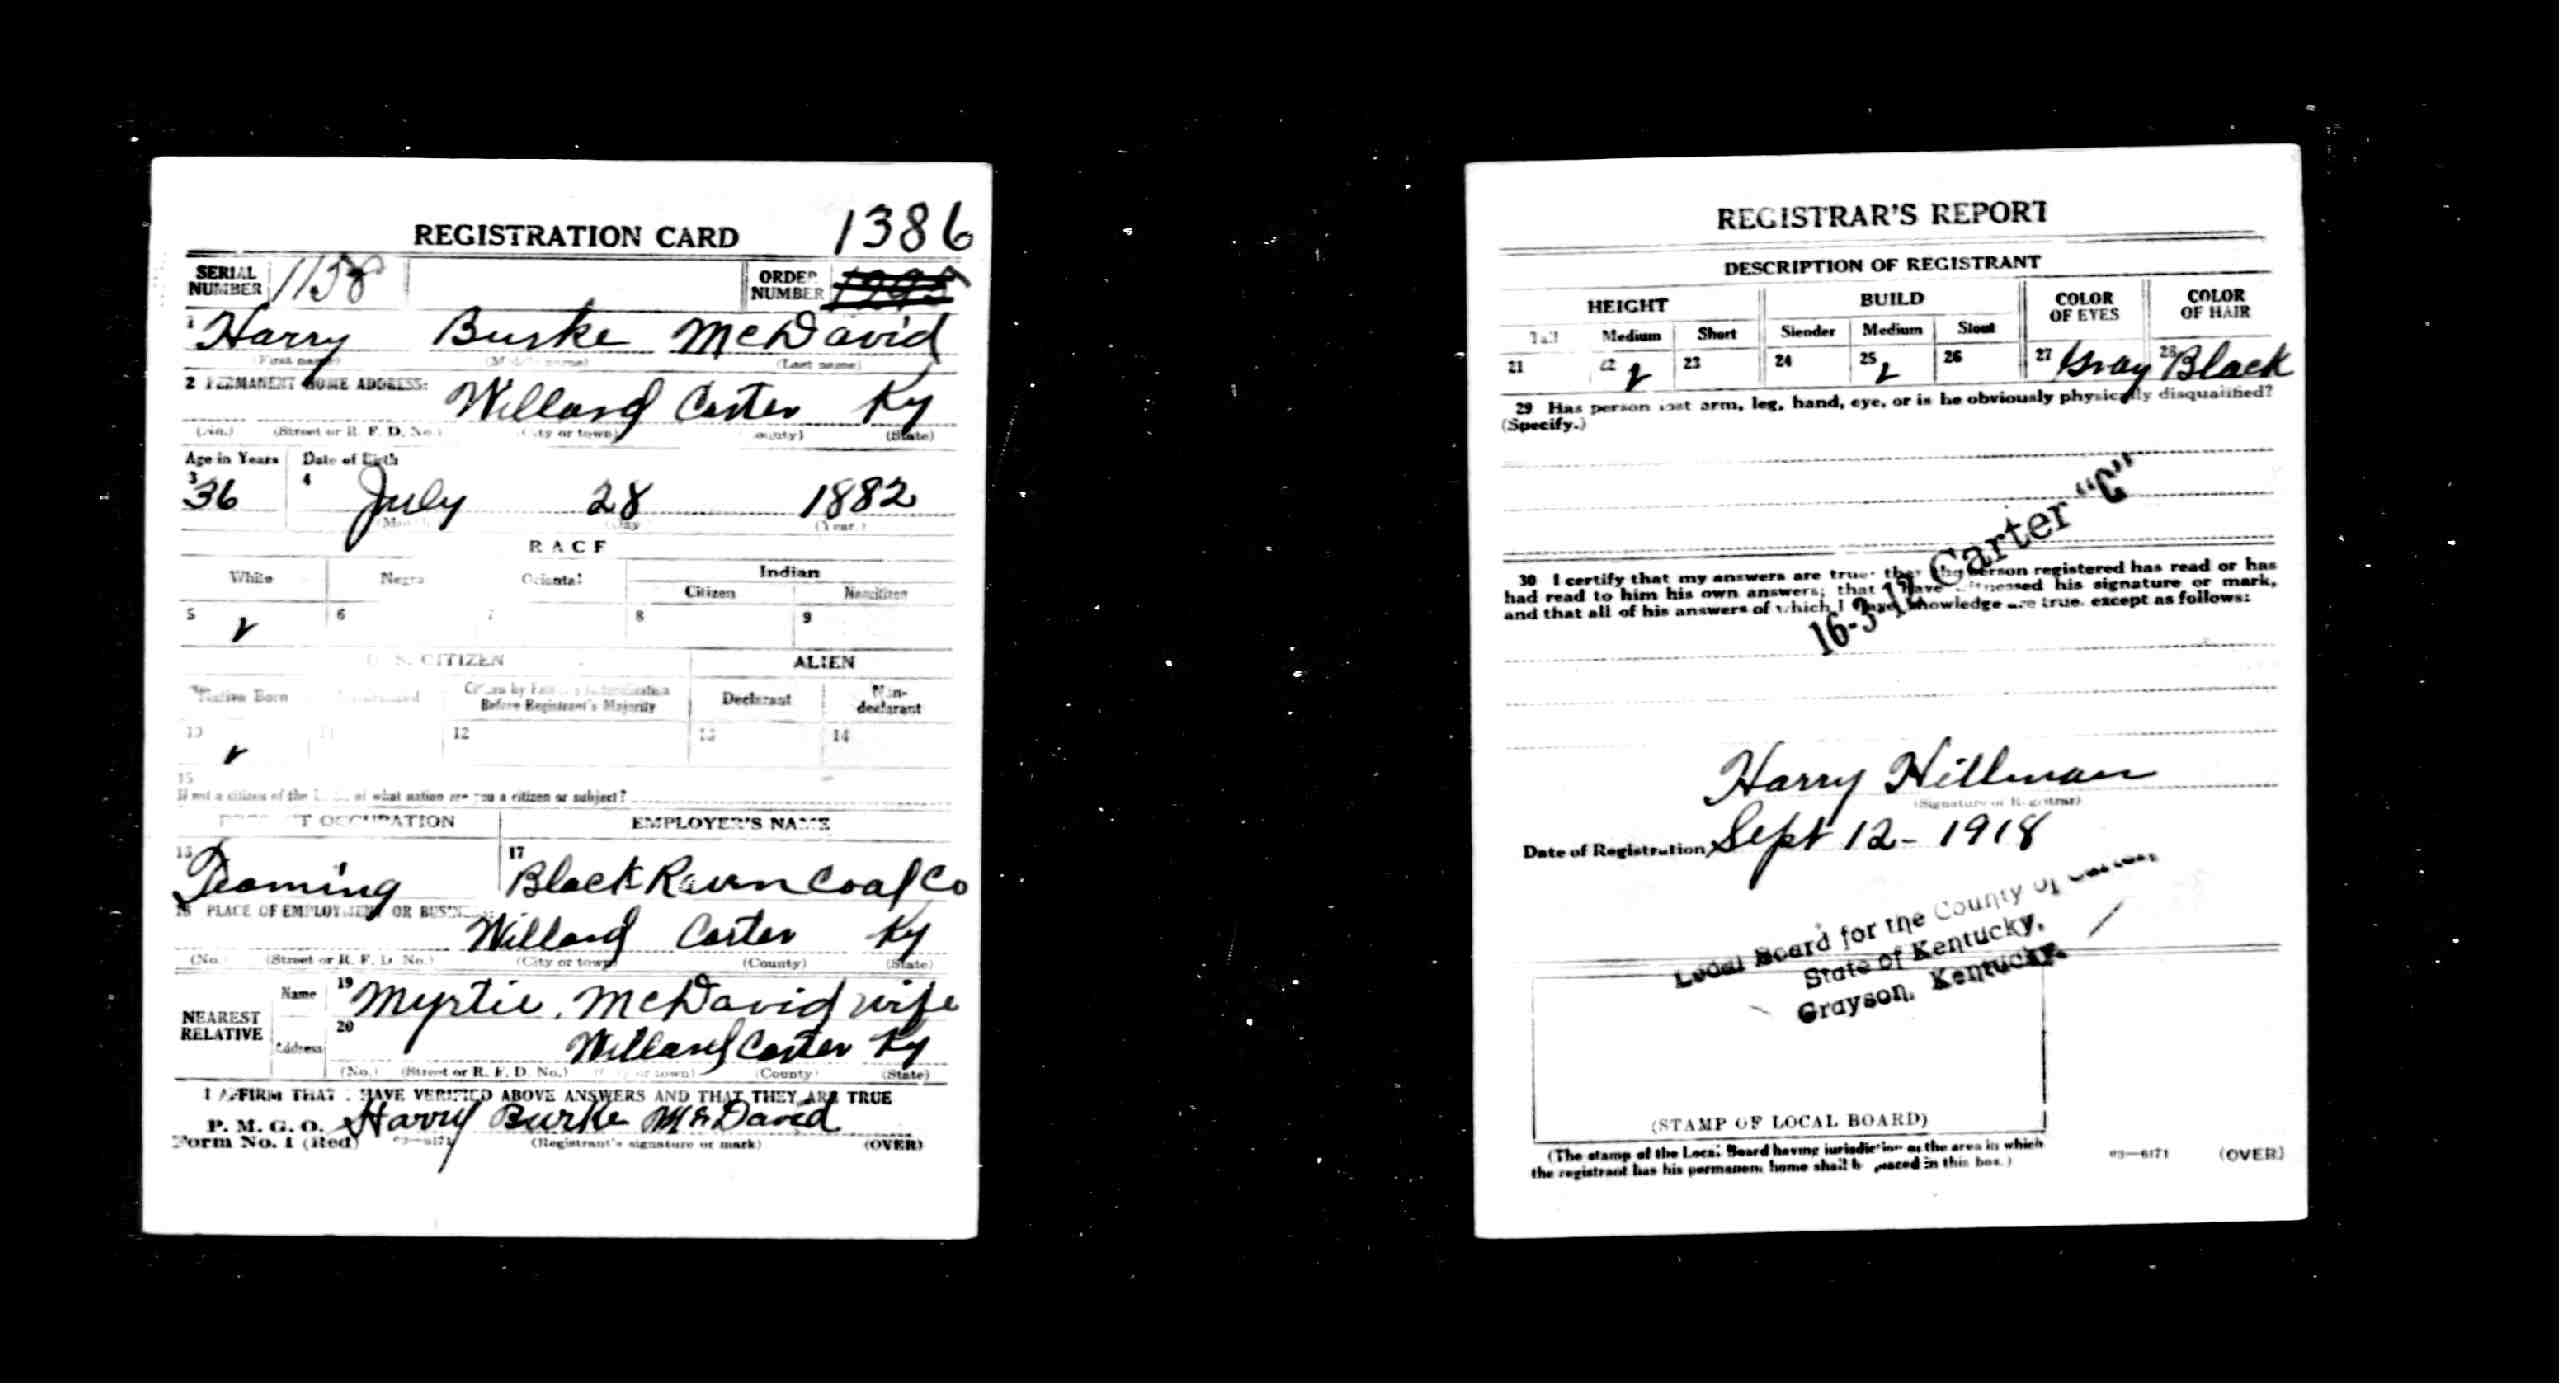 REGISTRATION CARD 1386
SERIAL NUMBER 1158 ORDER NUMBER
1 Harry Burke McDavid
(First name) (Middle name) (Last name)
2 PERMANENT HOME ADDRESS:
Willard Carter Ky
(No.) (Street or R. F. D. No.) (City or town) (County) (State)
Age in Years Date of Birth
3 36 4 July 28 1882
(Month) (Day) (Year.)
RACE
White Negro Oriental Indian
Citizen Noncitizen
5 6 7 8 9
U. S. CITIZEN ALIEN
Native Born Naturalized Citizen by Father's Naturalization Before Registrant's Majority Declarant Non-declarant
10 11 12 13 14
15
If not a citizen of the U. S., of what nation are you a citizen or subject?
PRESENT OCCUPATION EMPLOYER'S NAME
16 Teaming 17 Black Raven Coal Co
18 PLACE OF EMPLOYMENT OR BUSINESS:
Willard Carter Ky
(No.) (Street or R. F. D. No.) (City or town) (County) (State)
NEAREST RELATIVE
Name 19 Myrtie McDavid wife
Address 20 Willard Carter Ky
(No.) (Street or R. F. D. No.) (City or town) (County) (State)
I AFFIRM THAT I HAVE VERIFIED ABOVE ANSWERS AND THAT THEY ARE TRUE
P. M. G. O.
Form No. 1 (Red) 03—6171 Harry Burke McDavid
(Registrant's signature or mark) (OVER)
REGISTRAR'S REPORT
DESCRIPTION OF REGISTRANT
HEIGHT BUILD COLOR OF EYES COLOR OF HAIR
Tall Medium Short Slender Medium Stout
21 22 23 24 25 26 27 Gray 28 Black
29 Has person lost arm, leg, hand, eye, or is he obviously physically disqualified?
(Specify.)
16-3-12 Carter "C"
30 I certify that my answers are true; that the person registered has read or has
had read to him his own answers; that I have witnessed his signature or mark,
and that all of his answers of which I have knowledge are true, except as follows:
Harry Hillman
(Signature of Registrar)
Date of Registration Sept 12- 1918
Local Board for the County of Carter,
State of Kentucky,
Grayson, Kentucky.
(STAMP OF LOCAL BOARD)
(The stamp of the Local Board having jurisdiction of the area in which
the registrant has his permanent home shall be placed in this box.)
03—6171 (OVER)